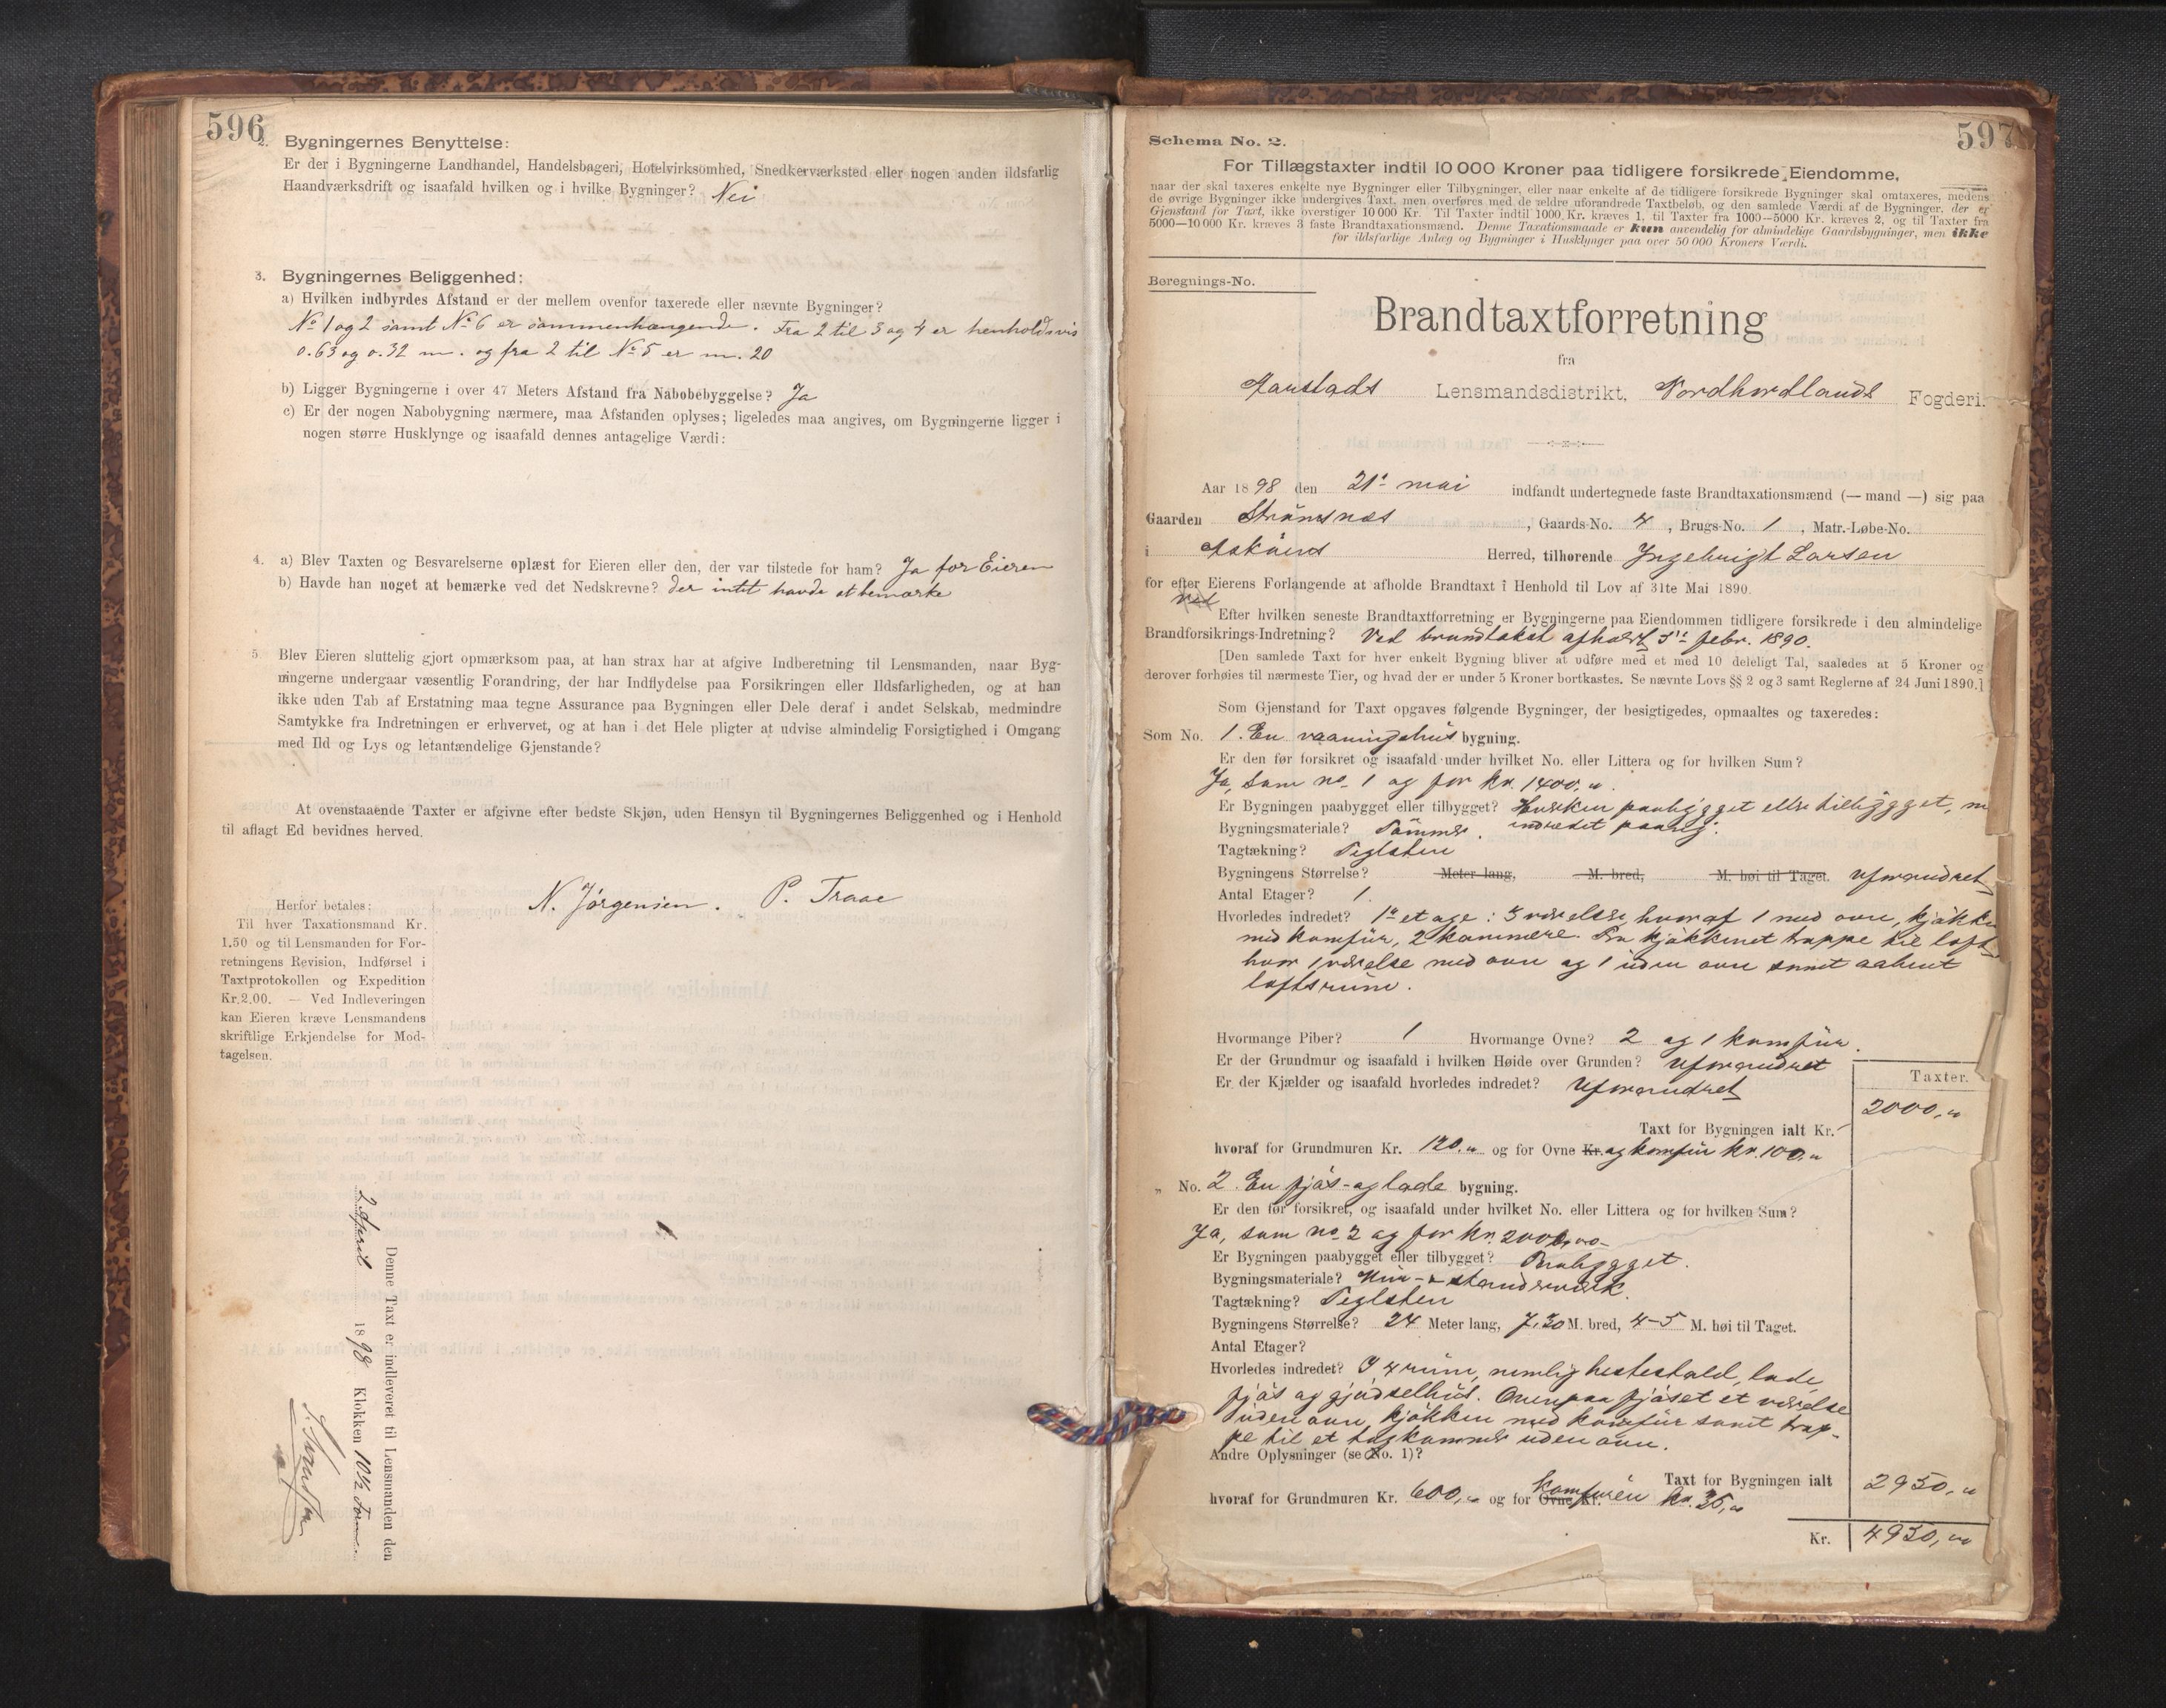 596
2. Bygningernes Benyttelse:
Er der i Bygningerne Landhandel, Handelsbageri, Hotelvirksomhed, Snedkerværksted eller nogen anden ildsfarlig
Haandværksdrift og isaafald hvilken og i hvilke Bygninger? Nei
3. Bygningernes Beliggenhed:
a) Hvilken indbyrdes Afstand er der mellem ovenfor taxerede eller nævnte Bygninger?
No 1 og 2 samt No 6 er sammenhængende. Fra 2 til 3 og 4 er henholdsvis
0.63 og 0.32 m. og fra 2 til No 5 er m. 20
b) Ligger Bygningerne i over 47 Meters Afstand fra Nabobebyggelse? Ja
c) Er der nogen Nabobygning nærmere, maa Afstanden oplyses; ligeledes maa angives, om Bygningerne ligger i
nogen større Husklynge og isaafald dennes antagelige Værdi:
4. a) Blev Taxten og Besvarelserne oplæst for Eieren eller den, der var tilstede for ham? Ja for Eieren
b) Havde han noget at bemærke ved det Nedskrevne? der intet havde at bemærke
5 Blev Eieren sluttelig gjort opmærksom paa, at han strax har at afgive Indberetning til Lensmanden, naar Byg-
ningerne undergaar væsentlig Forandring, der har Indflydelse paa Forsikringen eller Ildsfarligheden, og at han
ikke uden Tab af Erstatning maa tegne Assurance paa Bygningen eller Dele deraf i andet Selskab, medmindre
Samtykke fra Indretningen er erhvervet, og at han i det Hele pligter at udvise almindelig Forsigtighed i Omgang
med Ild og Lys og letantændelige Gjenstande?
At ovenstaaende Taxter er afgivne efter bedste Skjøn, uden Hensyn til Bygningernes Beliggenhed og i Henhold
til aflagt Ed bevidnes herved.
N. Jørgensen. P. Traae
Herfor betales:
Til hver Taxationsmand Kr.
1.50 og til Lensmanden for For-
retningens Revision, Indførsel i
Taxtprotokollen og Expedition
Kr.2.00. — Ved Indleveringen
kan Eieren kræve Lensmandens
skriftlige Erkjendelse for Mod-
tagelsen.
Denne Taxt er indleveret til Lensmanden den
2 April 1898 Klokken 10½ Form.
597
Schema No. 2.
For Tillægstaxter indtil 10 000 Kroner paa tidligere forsikrede Eiendomme,
naar der skal taxeres enkelte nye Bygninger eller Tilbygninger, eller naar enkelte af de tidligere forsikrede Bygninger skal omtaxeres, medens
de øvrige Bygninger ikke undergives Taxt, men overføres med de ældre uforandrede Taxtbeløb, og den samlede Værdi af de Bygninger, der er
Gjenstand for Taxt, ikke overstiger 10 000 Kr. Til Taxter indtil 1000 Kr. kræves 1, til Taxter fra 1000—5000 Kr. kræves 2, og til Taxter fra
5000—10 000 Kr. kræves 3 faste Brandtaxationsmænd. Denne Taxationsmaade er kun anvendelig for almindelige Gaardsbygninger, men ikke
for ildsfarlige Anlæg og Bygninger i Husklynger paa over 50 000 Kroners Værdi.
Beregnings-No.
Brandtaxtforretning
fra
Aarstads Lensmandsdistrikt, Nordhordlands Fogderi.
Aar 1898 den 21' mai indfandt undertegnede faste Brandtaxationsmænd (— mand —) sig paa
Gaarden Strömsnæs, Gaards-No. 4, Brugs-No. 1, Matr.-Løbe-No.
i Askøens Herred, tilhørende Ingebrigt Larsen
for efter Eierens Forlangende at afholde Brandtaxt i Henhold til Lov af 31te Mai 1890.
Ved
Efter hvilken seneste Brandtaxtforretning er Bygningerne paa Eiendommen tidligere forsikrede i den almindelige
Brandforsikrings-Indretning? Ved brandtakst afholdt 5' febr. 1890.
[Den samlede Taxt for hver enkelt Bygning bliver at udføre med et med 10 deleligt Tal, saaledes at 5 Kroner og
derover forhøies til nærmeste Tier, og hvad der er under 5 Kroner bortkastes. Se nævnte Lovs §§ 2 og 3 samt Reglerne af 24 Juni 1890.]
Som Gjenstand for Taxt opgaves følgende Bygninger, der besigtigedes, opmaaltes og taxeredes:
Som No. 1. En vaaningshus bygning.
Er den før forsikret og isaafald under hvilket No. eller Littera og for hvilken Sum?
Ja, som no. 1 og for kr. 1400,„.
Er Bygningen paabygget eller tilbygget? Hverken paabygget eller tilbygget, m
Bygningsmateriale? Tømmer. indredet paany.
Tagtækning? Teglsten
Bygningens Størrelse? Meter lang, M. bred, M. høi til Taget. Uforandret
Antal Etager? 1.
Hvorledes indredet? 1ste etage: 3 værelser, hvoraf 1 med ovn, kjøkken
med komfür, 2 kammere. Fra kjøkkenet trappe til loft
hvor 1 værelse med ovn og 1 uden ovn samt aabent
loftsrum.
Hvormange Piber? 1 Hvormange Ovne? 2 og 1 komfür.
Er der Grundmur og isaafald i hvilken Høide over Grunden? Uforandret
Er der Kjælder og isaafald hvorledes indredet? Uforandret
Taxter.
Taxt for Bygningen ialt Kr. 2000,„
hvoraf for Grundmuren Kr. 120,„ og for Ovne Kr. og komfür kr. 100,„
„ No. 2. En fjøs- og lade bygning.
Er den før forsikret, og isaafald under hvilket No. eller Littera og for hvilken Sum?
Ja, som no. 2 og for kr. 2000,00
Er Bygningen paabygget eller tilbygget? Paabygget.
Bygningsmateriale? Mur- & standerverk.
Tagtækning? Teglsten
Bygningens Størrelse? 24 Meter lang, 7,30 M. bred, 4-5 M. høi til Taget.
Antal Etager?
Hvorledes indredet? I 4 rum, nemlig hestestald, lade,
fjøs og gjødselhus. Ovenpaa fjøset et værelse
uden ovn, kjøkken med komfür samt trap-
pe til et tagkammer uden ovn.
Andre Oplysninger (se No. 1)?
Taxt for Bygningen ialt 2950,„
hvoraf for Grundmuren Kr. 600,„ og for Ovne Kr. komfuren kr. 35,„
Kr. 4950,„